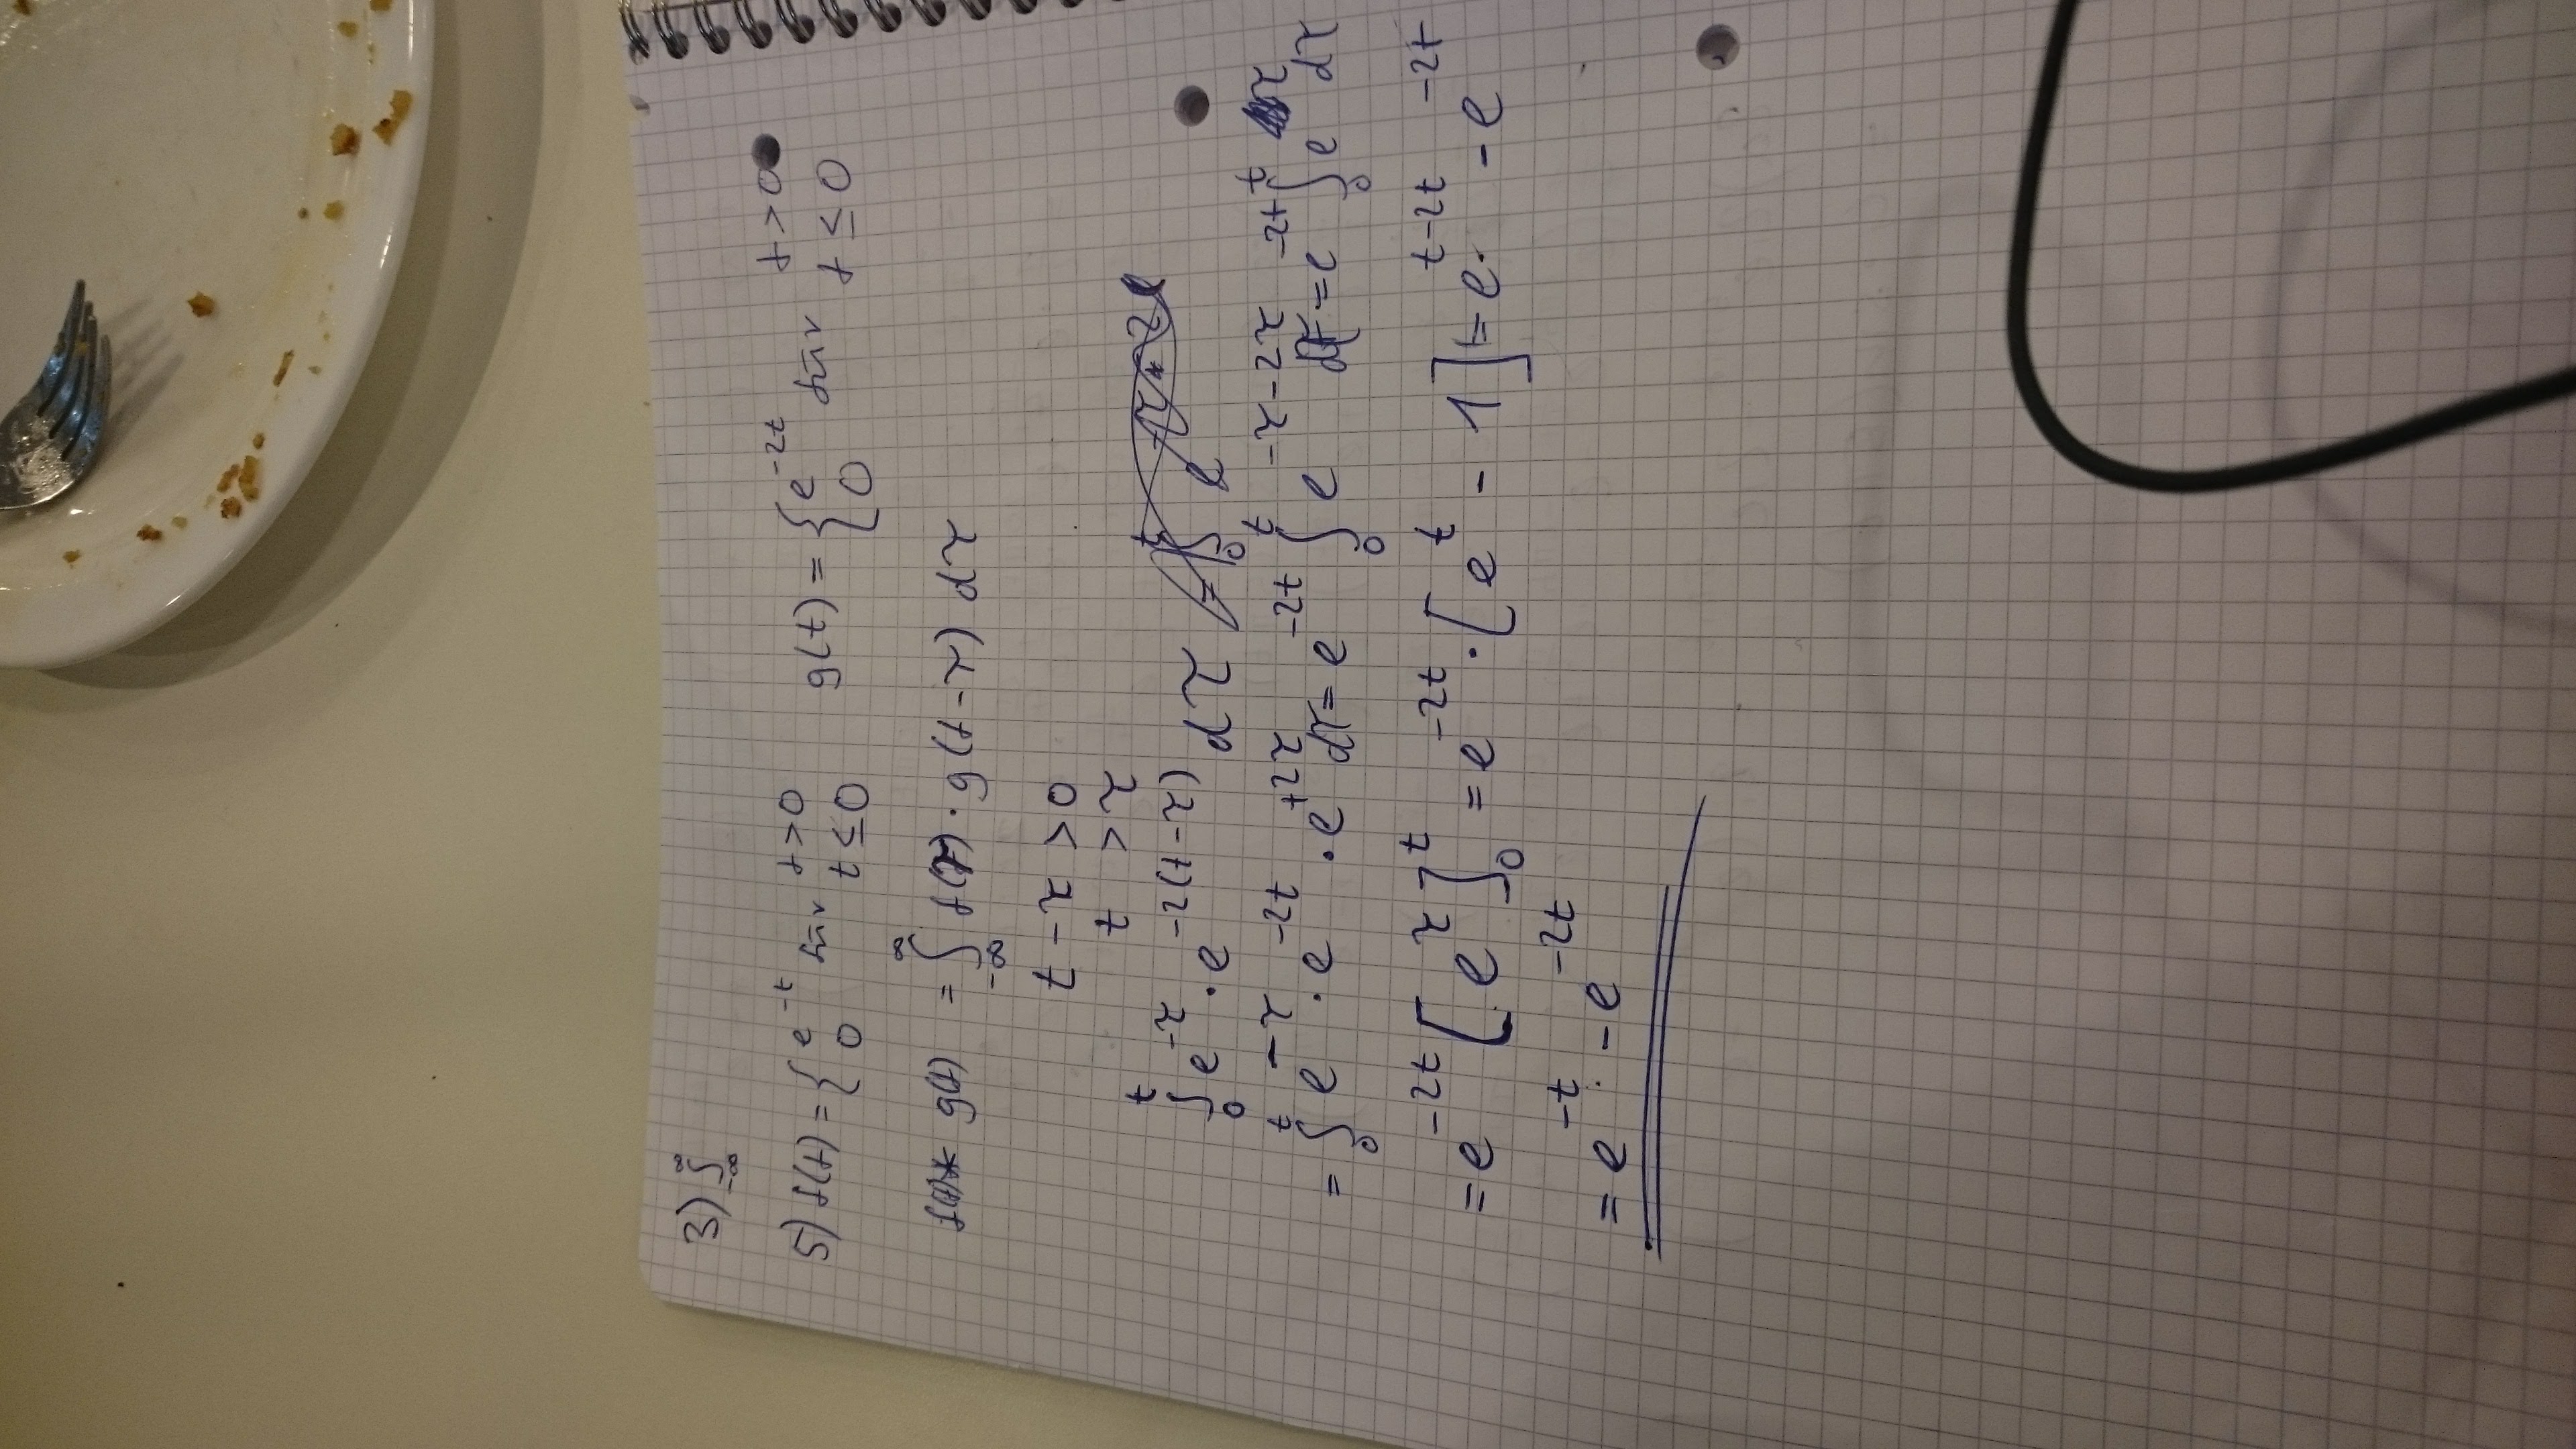 3) ∫_{-∞}^{∞}
5) f(t) = { e^{-t} für t > 0   g(t) = { e^{-2t} für t > 0
0 t ≤ 0   0 t ≤ 0
f(t) * g(t) = ∫_{-∞}^{∞} f(τ) · g(t-τ) dτ
t - τ > 0
t > τ
∫_0^t e^{-τ} · e^{-2(t-τ)} dτ
= ∫_0^t e^{-τ} · e^{-2t} · e^{+2τ} dτ = e^{-2t} ∫_0^t e^{-τ-2τ} dτ = e^{-2t} ∫_0^t e^{τ} dτ
= e^{-2t} [e^{τ}]_0^t = e^{-2t} · [e^t - 1] = e^{t-2t} - e^{-2t}
= e^{-t} - e^{-2t}